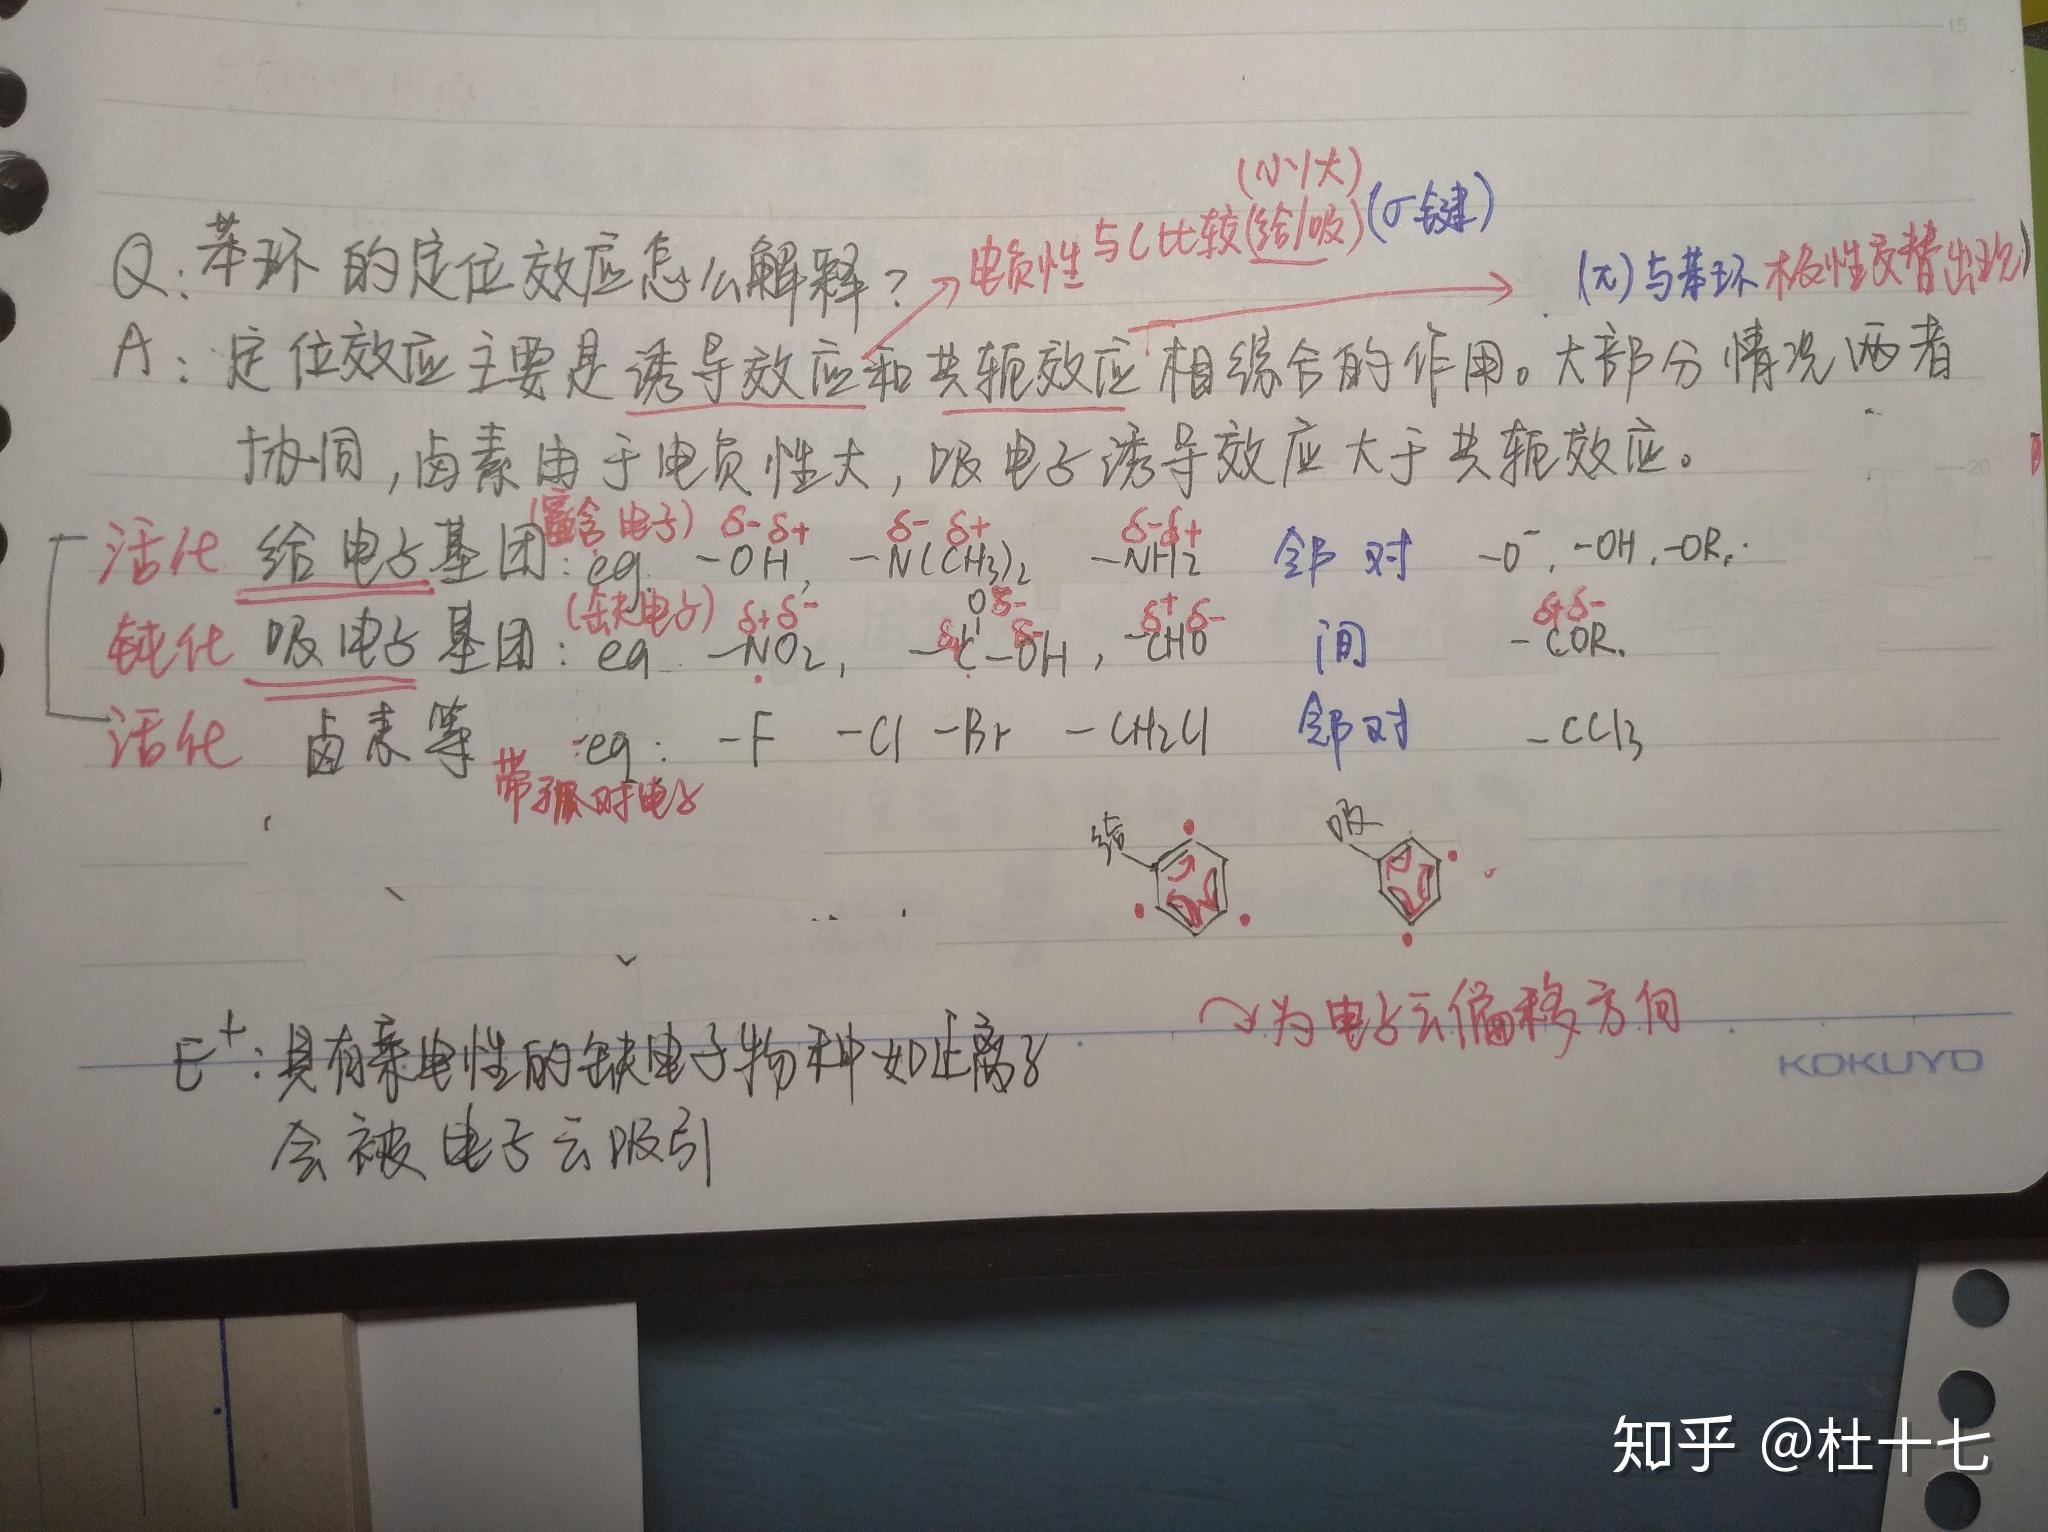 15
(小/大)
Q:苯环的定位效应怎么解释?
电负性与C比较(给/吸)(σ键)
(π)与苯环极性交替出现)
A:定位效应主要是诱导效应和共轭效应相综合的作用。大部分情况两者
协同,卤素由于电负性大,吸电子诱导效应大于共轭效应。
20
(富含电子) δ- δ+ δ- δ+ δ- δ+
活化 给电子基团:eg. -OH, -N(CH3)2 -NH2 邻对 -O⁻, -OH, -OR.
(缺电子) δ+ δ- δ+ O δ- δ- δ+ δ- δ+ δ-
钝化 吸电子基团:eg -NO2, -C-OH, -CHO 间 -COR.
活化 卤素等 eg: -F -Cl -Br -CH2Cl 邻对 -CCl3
带孤对电子
给 吸
↷为电子云偏移方向
E⁺:具有亲电性的缺电子物种如正离子
KOKUYO
会被电子云吸引
知乎 @杜十七